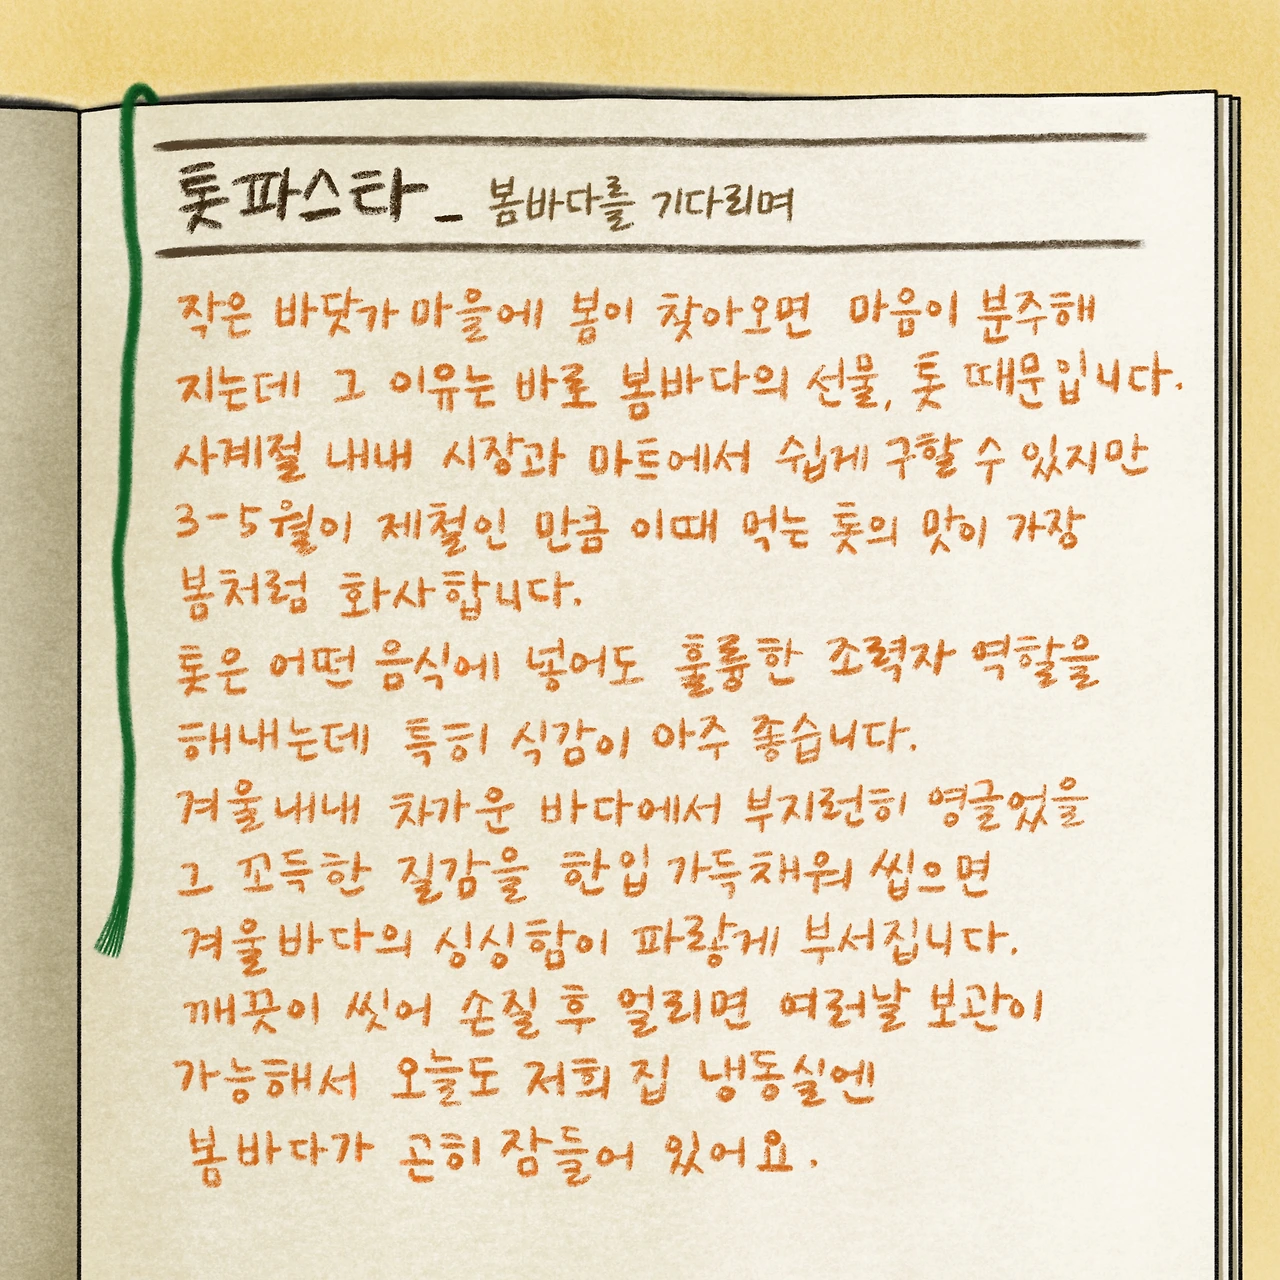 톳파스타_ 봄바다를 기다리며
작은 바닷가 마을에 봄이 찾아오면 마음이 분주해
지는데 그 이유는 바로 봄바다의 선물, 톳 때문입니다.
사계절 내내 시장과 마트에서 쉽게 구할 수 있지만
3-5월이 제철인 만큼 이때 먹는 톳의 맛이 가장
봄처럼 화사합니다.
톳은 어떤 음식에 넣어도 훌륭한 조력자 역할을
해내는데 특히 식감이 아주 좋습니다.
겨울내내 차가운 바다에서 부지런히 영글었을
그 꼬득한 질감을 한입 가득 채워 씹으면
겨울바다의 싱싱함이 파랗게 부서집니다.
깨끗이 씻어 손질 후 얼리면 여러날 보관이
가능해서 오늘도 저희 집 냉동실엔
봄바다가 곤히 잠들어 있어요.